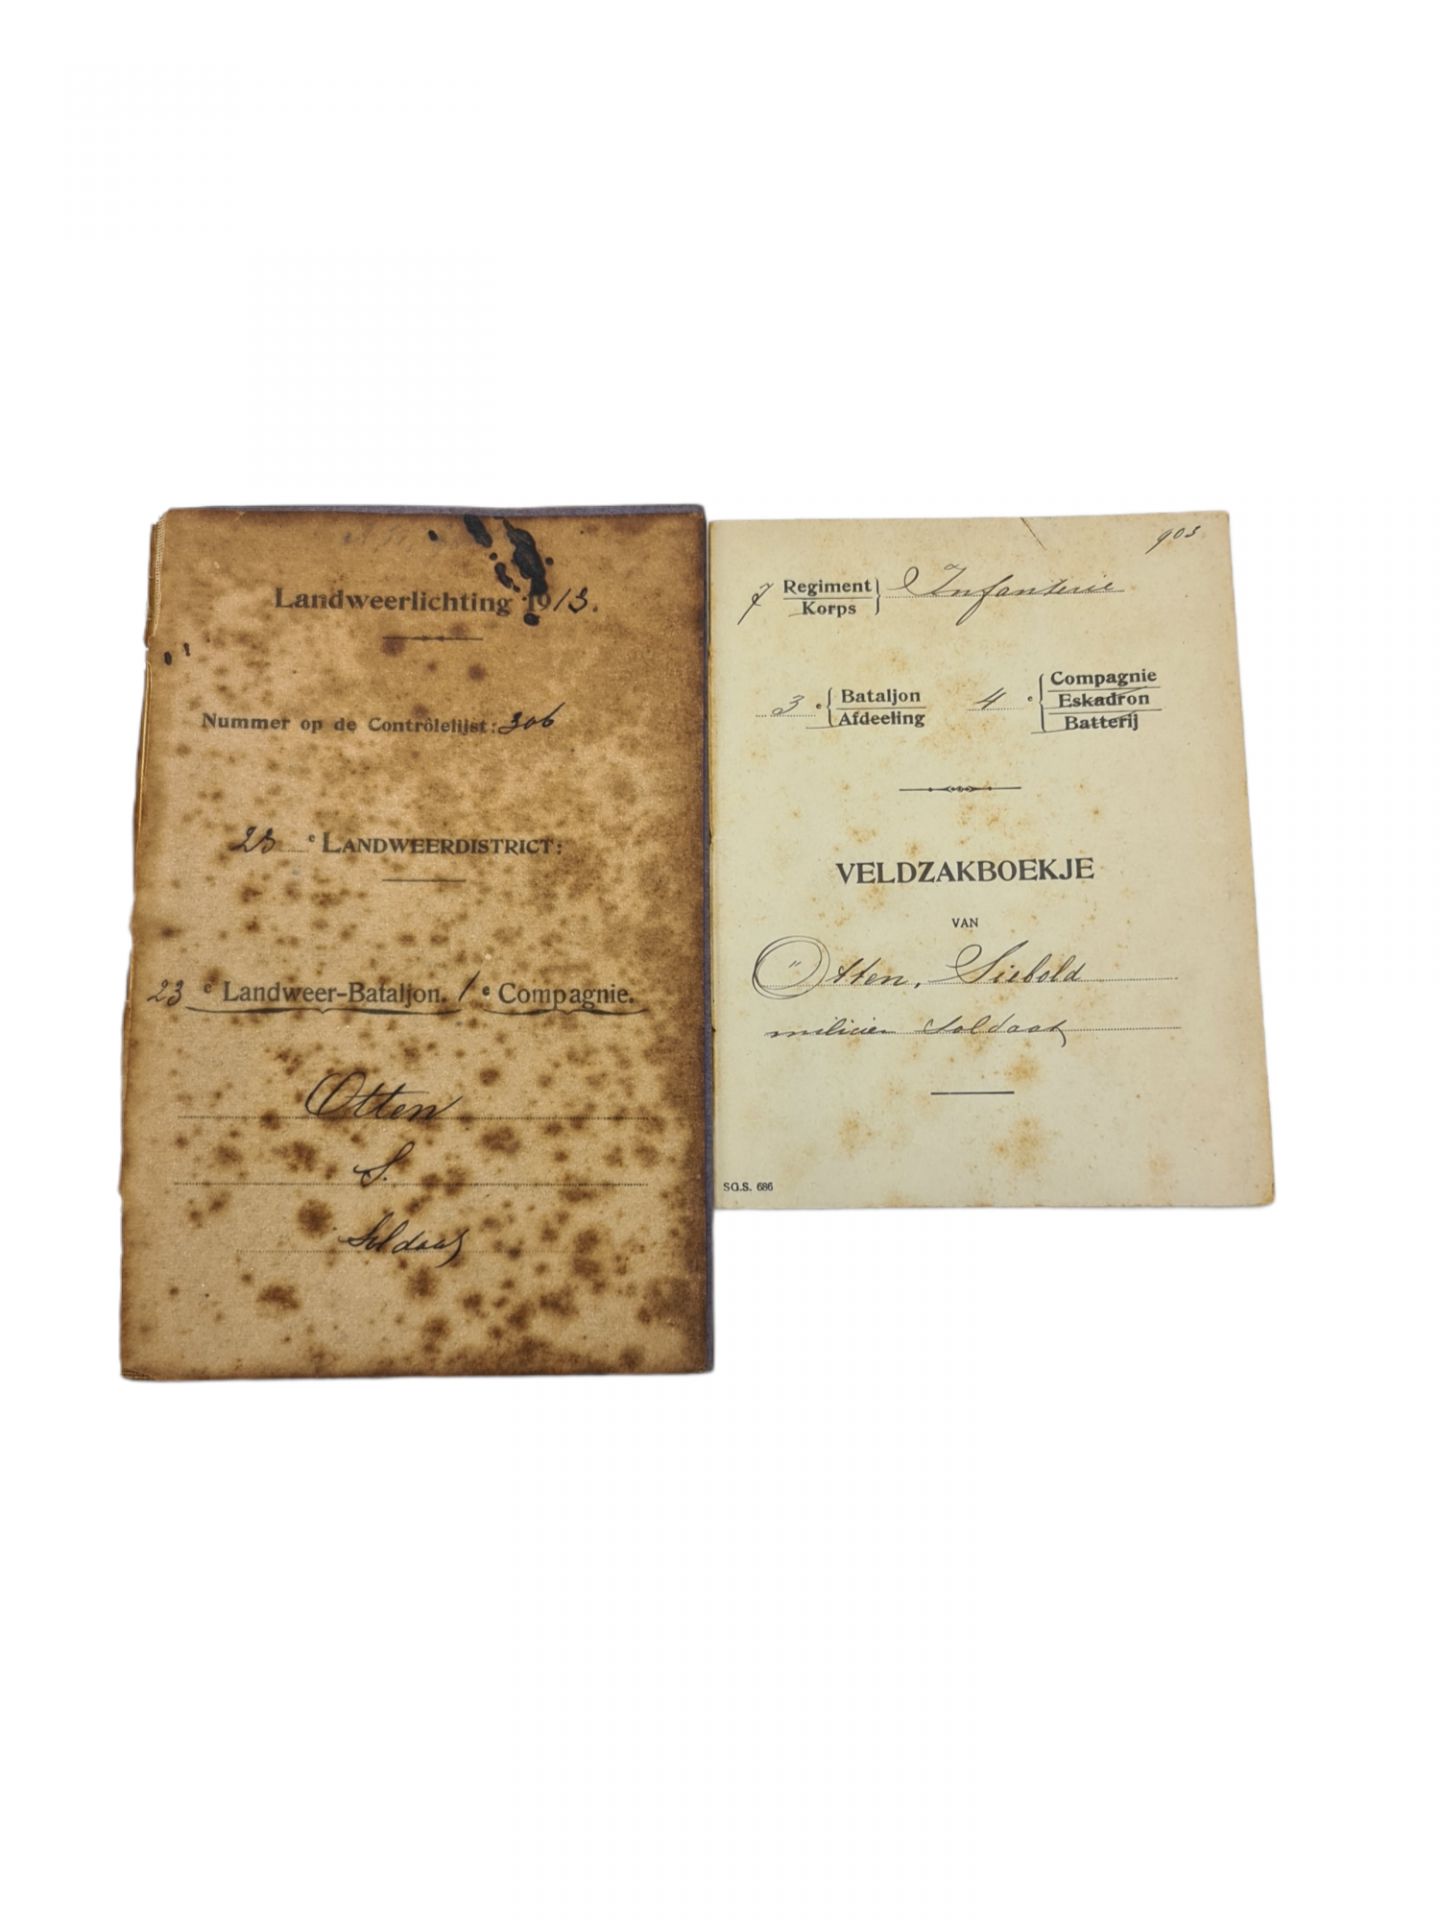 Landweerlichting 1913.
Nummer op de Contrôlelijst: 306
23e LANDWEERDISTRICT:
23e Landweer-Bataljon. 1e Compagnie.
Otten
S.
Soldaat
903
7 Regiment Infanterie
Korps
Compagnie
3e Bataljon 4e Eskadron
Afdeeling Batterij
VELDZAKBOEKJE
VAN
Otten, Siebold
milicien soldaat
SG.S. 686